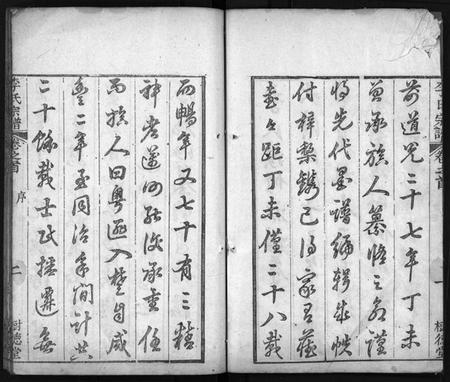 李氏宗譜
卷之首
一
樹德堂
前道光二十七年丁未
曾承族人纂修之命謹
將先代墨譜編輯成帙
付梓棃鐫已得家有藏
書々距丁未僅二十八載
而暢年又七十有三精
神老邁何能復承重任
而族人因粵匪入楚自咸
豐二年至同治年間計共
二十餘載士民播遷無
李氏宗譜
卷之首
序
二
樹德堂